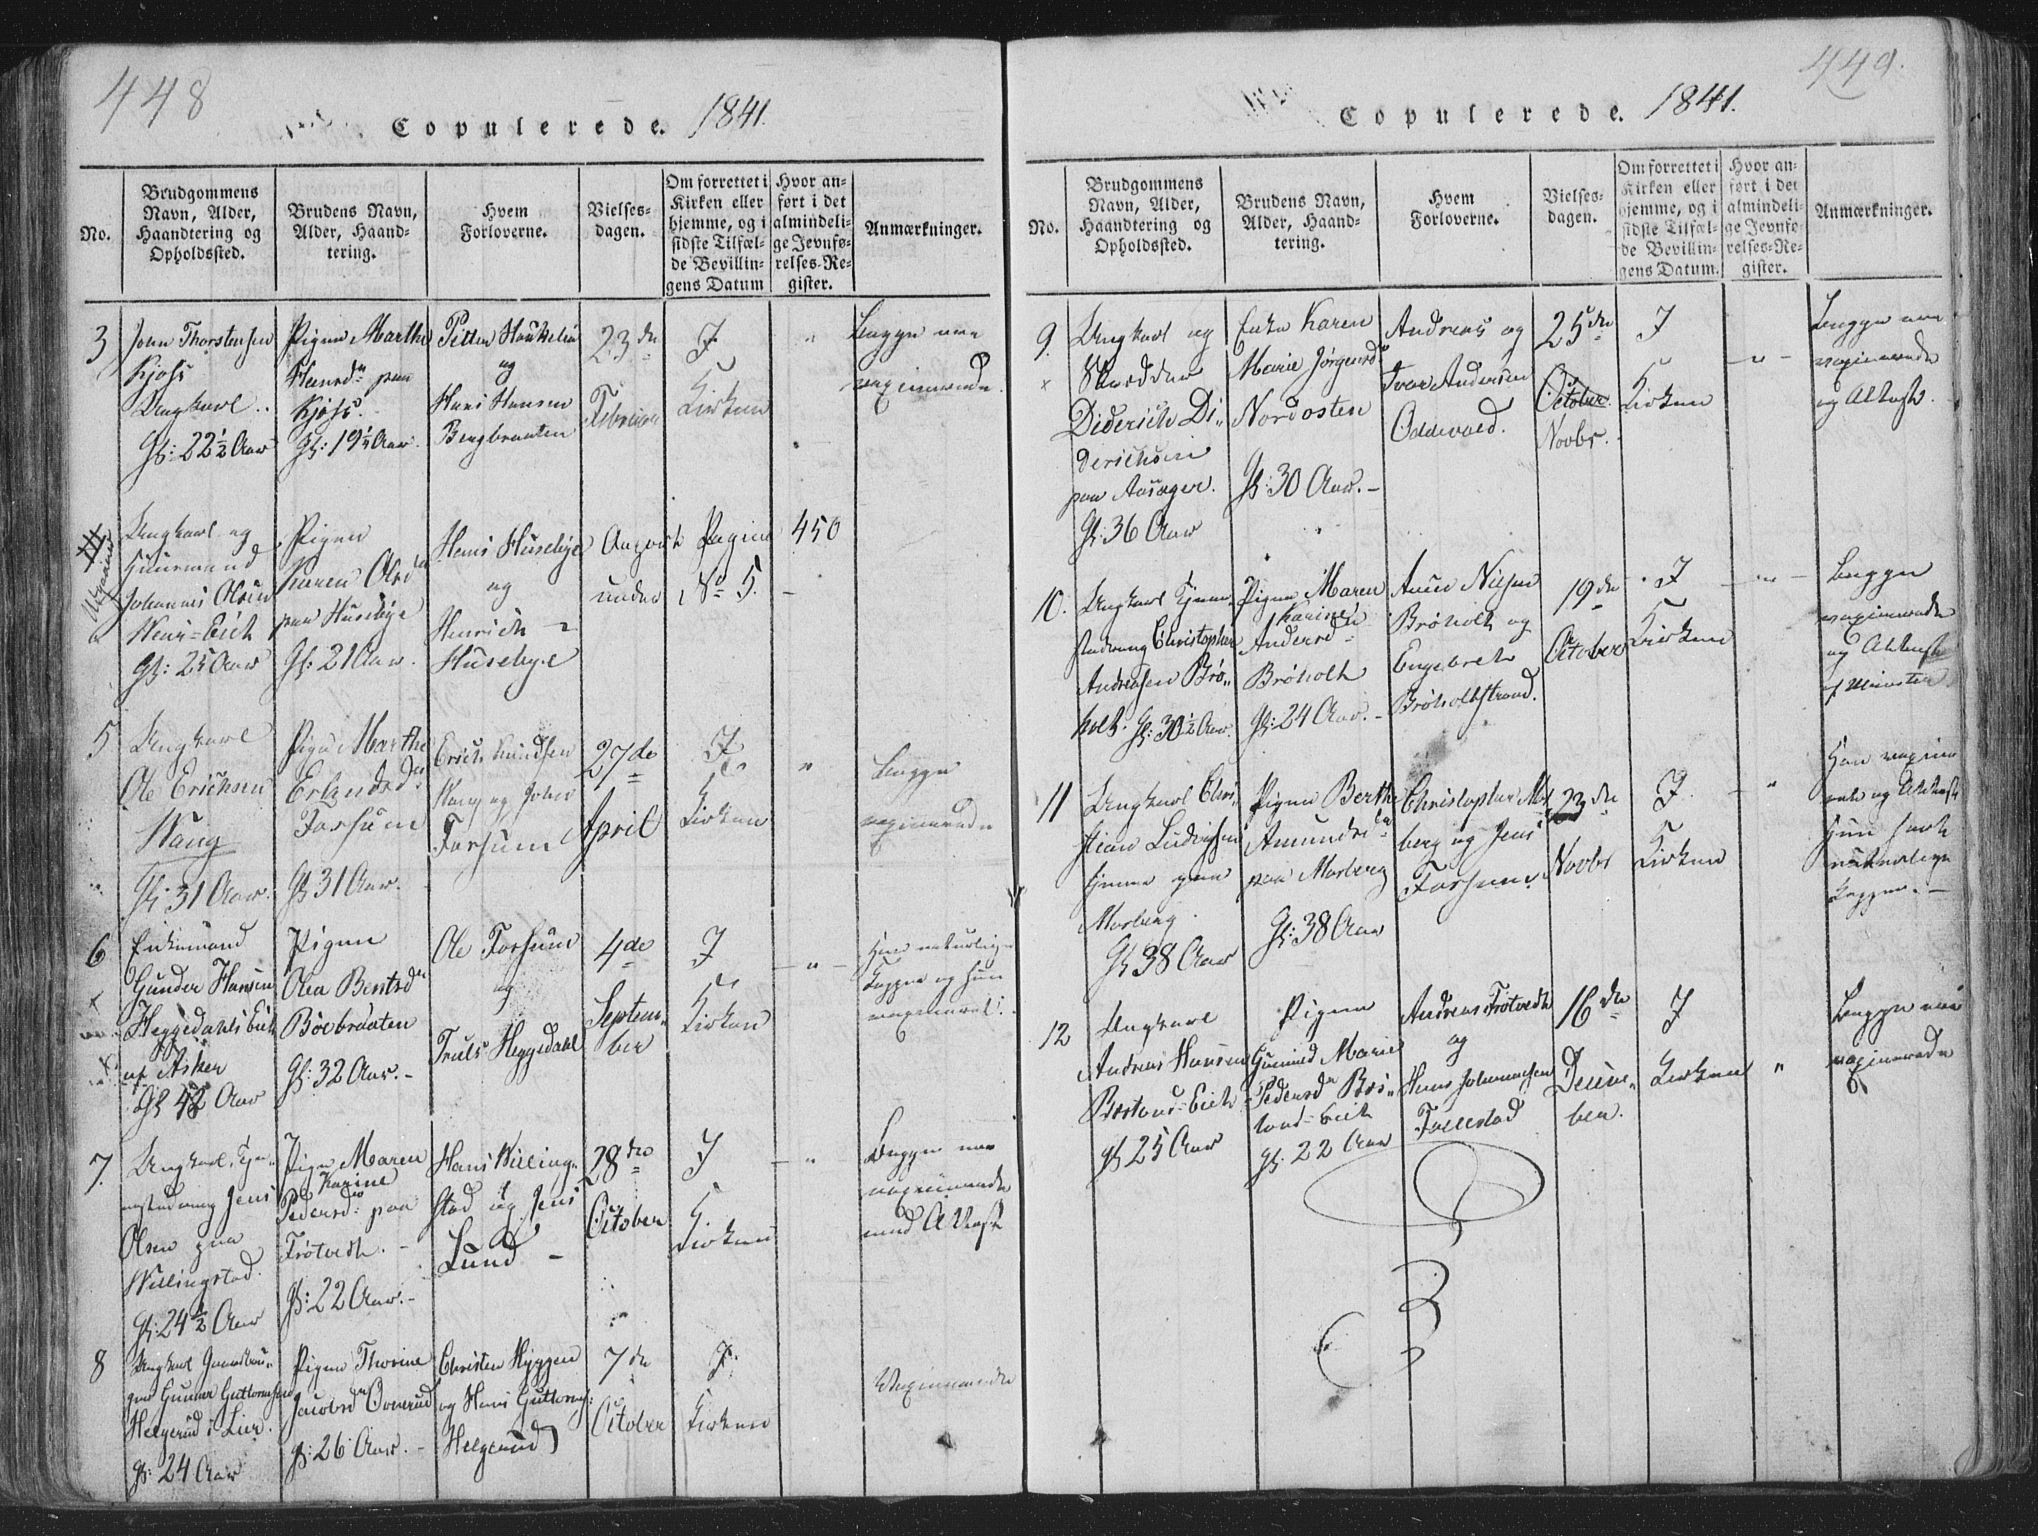 448
Copulerede. 1841.
No.
Brudgommens
Navn, Alder,
Haandtering og
Opholdssted.
Brudens Navn,
Alder, Haand-
tering.
Hvem
Forloverne.
Vielses-
dagen.
Om forrettet i
Kirken eller
hjemme, og i
sidste Tilfæl-
de Bevillin-
gens Datum
Hvor an-
ført i det
almindeli-
ge Jevnfø-
relses-Re-
gister.
Anmærkninger.
3
Thorstensen
Kjøss
Ungkarl
Gl: 22½ Aar
Pigen Marthe
Hansd. paa
Kjøss.
Gl: 19½ Aar.
og
Hans Hansen
Bergbraaten
23de
Februar
I
Kirken
Begge ere
vaxinerede
Ungkarl og
Huusmand
Johannes Olsen
Gl: 25 Aar
Pigen
Karen Olsd.
paa Husebye
Gl: 21 Aar.
Hans Husebye
og
Henrich
Husebye
August
under
Pagina
No 5.
450
5
Ungkarl
Ole Erichsen
Wang
Gl: 31 Aar.
Pigen Marthe
Erlandsd.
Forsum
Gl: 31 Aar.
Erich Knudsen
Wang og John
Forsum
27de
April
I
Kirken
"
Begge
vaxinerede
6
Enkemand
Gunder Hansen
Heggedahls Eich
af Asker
Gl: 42 Aar
Pigen
Olea Bentsd.
Böebraaten
Gl: 32 Aar.
Ole Forsum
og
Truls Heggedahl
4de
Septem-
ber
I
Kirken
"
Han naturlige
Kopper og hun
vaxineret.
7.
Ungkarl, Tje-
nestedreng Jens
Olsen paa
Willingstad.
Gl: 24½ Aar
Pigen Maren
Karine
Pedersd. paa
Trötvedt.
Gl: 22 Aar.
Hans Willing-
stad og Jens
Lund
28de
October
I
Kirken
"
Begge ere
vaxinerede
med Attest
8
Ungkarl Gaardbru-
ger Gunner Guttormsen
Helgerud i Lier.
Gl: 24 Aar
Pigen Thorine
Jacobsd. Overud
Gl: 26 Aar.
Christen Hyggen
og Hans Guttorms:
Helgerud
7de
October
I
Kirken
Vaxinerede
449.
Copulerede. 1841.
No.
Brudgommens
Navn, Alder,
Haandtering og
Opholdssted.
Brudens Navn,
Alder, Haand-
tering.
Hvem
Forloverne.
Vielses-
dagen.
Om forrettet i
Kirken eller
hjemme, og i
sidste Tilfæl-
de Bevillin-
gens Datum.
Hvor an-
ført i det
almindeli-
ge Jevnfø-
relses-Re-
gister.
Anmærkninger.
9.
Ungkarl og
Skrædder
Diderich Di-
derichsen
paa Aasager.
Gl: 36 Aar
Enke Karen
Marie Jörgensd.
Nordosten
Gl: 30 Aar.
Andreas og
Iver Andersen
Oddevald.
25de
October.
Novbr.
I
Kirken
"
Begge ere
vaxinerede
og Attest.
10.
Ungkarl Tjene-
stedreng Christopher
Andersen Brö-
holt. Gl: 30½ Aar.
Pigen Maren
Karine
Andersd.
Bröholt
Gl: 24 Aar.
Nielsen
Bröholt og
Engebret
Bröholtstrand.
19de
October
I
Kirken
"
Begge
vaxinerede
og Attester
11
Ungkarl Chri-
stian Ludvigsen
paa
Morberg.
Gl 38 Aar
Pigen Berthe
Amundsd.
paa Morberg
Gl: 38 Aar
Christopher Mor-
berg og Jens
Forsum.
23de
Novbr
I
Kirken
"
Han vaxine-
ret og Attest
Hun havt
naturlige
Kopper.
12
Ungkarl
Andreas Hansen
Eich
Gl 25 Aar
Pigen
Gunild Marie
Pedersd.
Eich
Gl: 22 Aar
Andreas Trötvedt
og
Hans Johannesen
Follestad
16de
Decem-
ber.
I
Kirken
"
Begge ere
vaxinerede